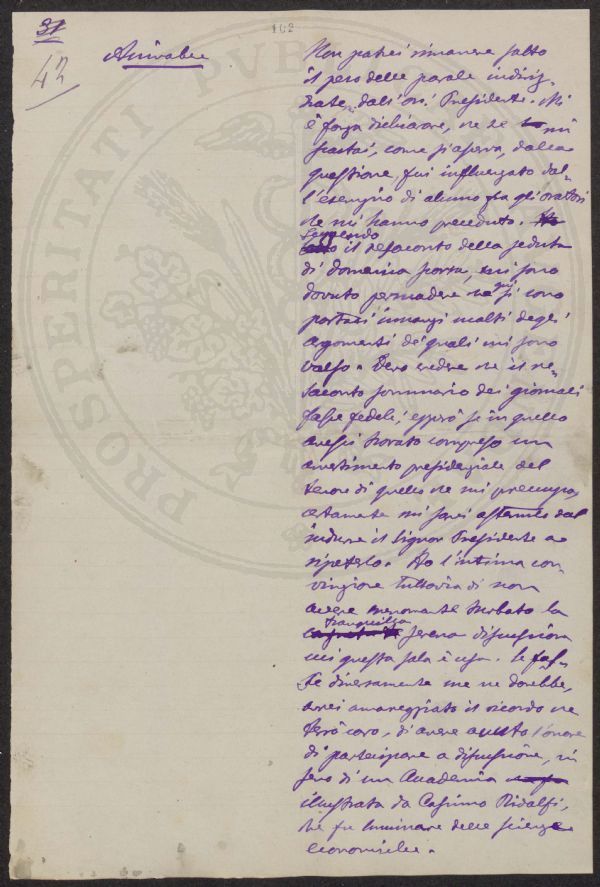 31
42
102
Non potrei rimanere sotto
il peso delle parole indiriz-
zatemi dall'on. Presidente. Mi
è forza dichiarare, che se mi
scostai, come si asserì, dalla
questione, fui influenzato dal-
l'esempio di alcuno fra gli oratori
che mi hanno preceduto.
Leggendo
il resoconto della seduta
di domenica scorsa, mi sono
dovuto persuadere che qui si sono
portati innanzi molti degli
argomenti de' quali mi sono
valso. Devo credere che il re-
soconto sommario dei giornali
fosse fedele, epperò se in quello
avessi trovato compreso un
avvertimento presidenziale del
tenore di quello che mi preoccupa,
certamente mi sarei astenuto dal
indurre il Signor Presidente a
ripeterlo. Ho l'intima con-
vinzione tuttavia di non
avere menomamente turbato la
tranquilla
serena discussione
cui questa sala è usa. Se fos-
se diversamente me ne dorrebbe,
avrei amareggiato il ricordo che
terrò caro, di avere avuto l'onore
di partecipare a discussione, in
seno di un Accademia
illustrata da Cosimo Ridolfi,
che fu luminare delle scienze
economiche.
PROSPERITATI PUBLICAE